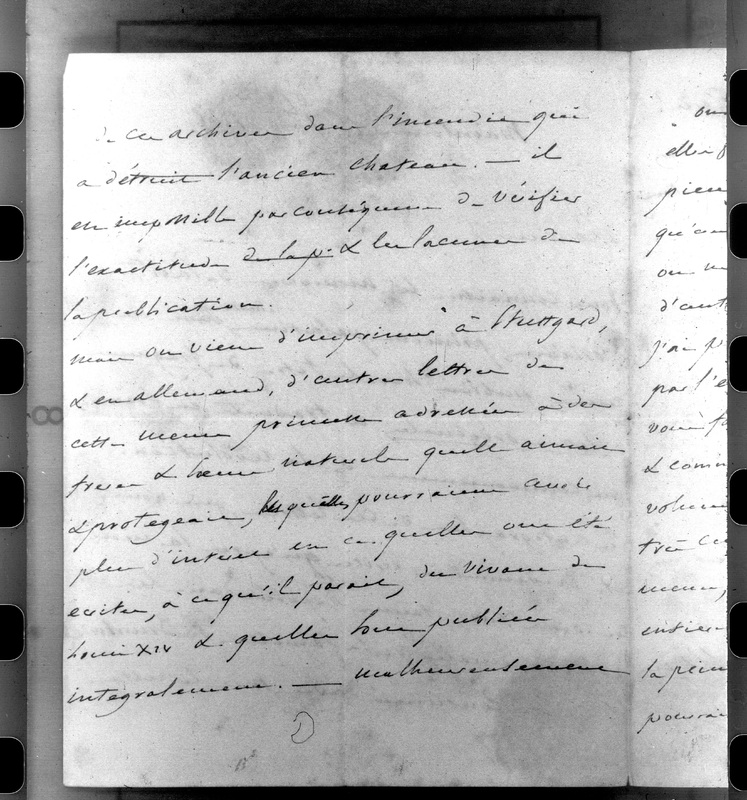 de ces archives dans l'incendie qui
a détruit l'ancien chateau. — il
est impossible par conséquence de vérifier
l'exactitude de la p. & les lacunes de
la publication.
mais on vient d'imprimer à Stuttgard,
& en allemand, d'autres lettres de
cette meme princesse adressées à des
freres & soeurs naturels quelle aimait
& protegeait, lesquelles pourraient avoir
plus d'intéret en ce quelles ont été
ecrites, à ce qu'il parait, du vivant de
Louis XIV & quelles sont publiées
integralement. — malheureusement
on
elles
pieu
qu'
ou
d'aut
j'ai p
par l'e
vous f
& comm
volum
très
meme,
entier
la pein
pourrai